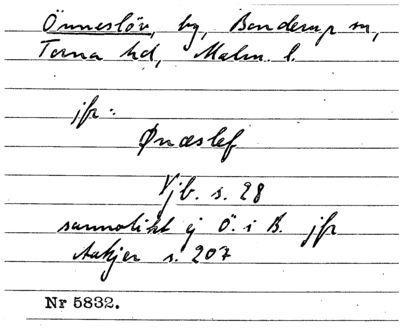 Önneslöv, by, Bonderup sn,
Torna hd, Malm. l.
jfr:
Ønæslef
Vjb. s. 28
sannolikt ej Ö. i B. jfr
Aakjer s. 207
Nr 5832.